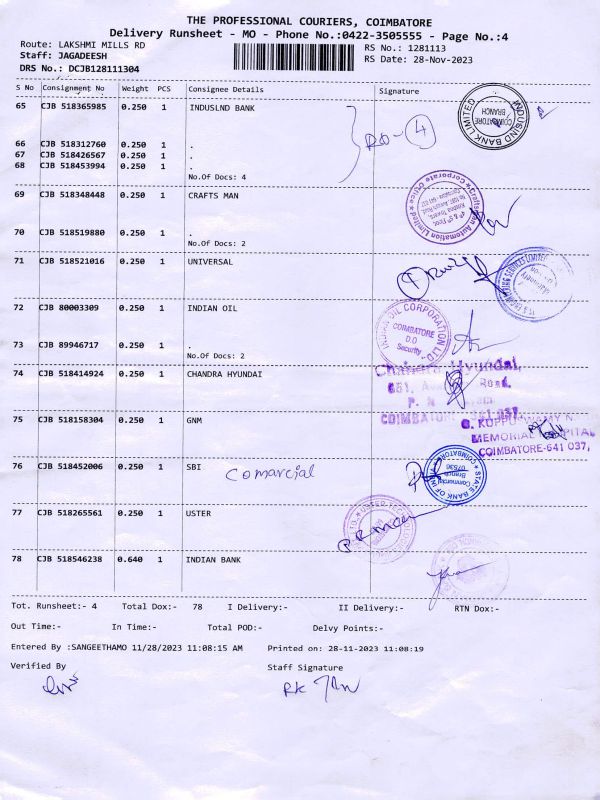 THE PROFESSIONAL COURIERS, COIMBATORE
Delivery Runsheet - MO - Phone No.:0422-3505555 - Page No.:4
Route: LAKSHMI MILLS RD
RS No.: 1281113
Staff: JAGADEESH
RS Date: 28-Nov-2023
DRS No.: DCJB128111304
S No Consignment No Weight PCS Consignee Details Signature
65 CJB 518365985 0.250 1 INDUSLND BANK
INDUSIND BANK LIMITED
COIMBATORE
BRANCH
4
66 CJB 518312760 0.250 1 .
67 CJB 518426567 0.250 1 .
68 CJB 518453994 0.250 1 .
No.Of Docs: 4
69 CJB 518348448 0.250 1 CRAFTS MAN
Craftsman Automation Limited
Corporate Office
70 CJB 518519880 0.250 1 .
No.Of Docs: 2
71 CJB 518521016 0.250 1 UNIVERSAL
72 CJB 80003309 0.250 1 INDIAN OIL
INDIAN OIL CORPORATION LTD.
COIMBATORE
D.O
Security
73 CJB 89946717 0.250 1 .
No.Of Docs: 2
74 CJB 518414924 0.250 1 CHANDRA HYUNDAI
Chandra Hyundai,
Road,
COIMBATORE
75 CJB 518158304 0.250 1 GNM
G. KUPPUSWAMY N.
MEMORIAL HOSPITAL
COIMBATORE-641 037,
76 CJB 518452006 0.250 1 SBI
Comarcial
STATE BANK OF INDIA
Commercial
Branch
07536
COIMBATORE
77 CJB 518265561 0.250 1 USTER
78 CJB 518546238 0.640 1 INDIAN BANK
Tot. Runsheet:- 4 Total Dox:- 78 I Delivery:- II Delivery:- RTN Dox:-
Out Time:- In Time:- Total POD:- Delvy Points:-
Entered By :SANGEETHAMO 11/28/2023 11:08:15 AM Printed on: 28-11-2023 11:08:19
Verified By Staff Signature